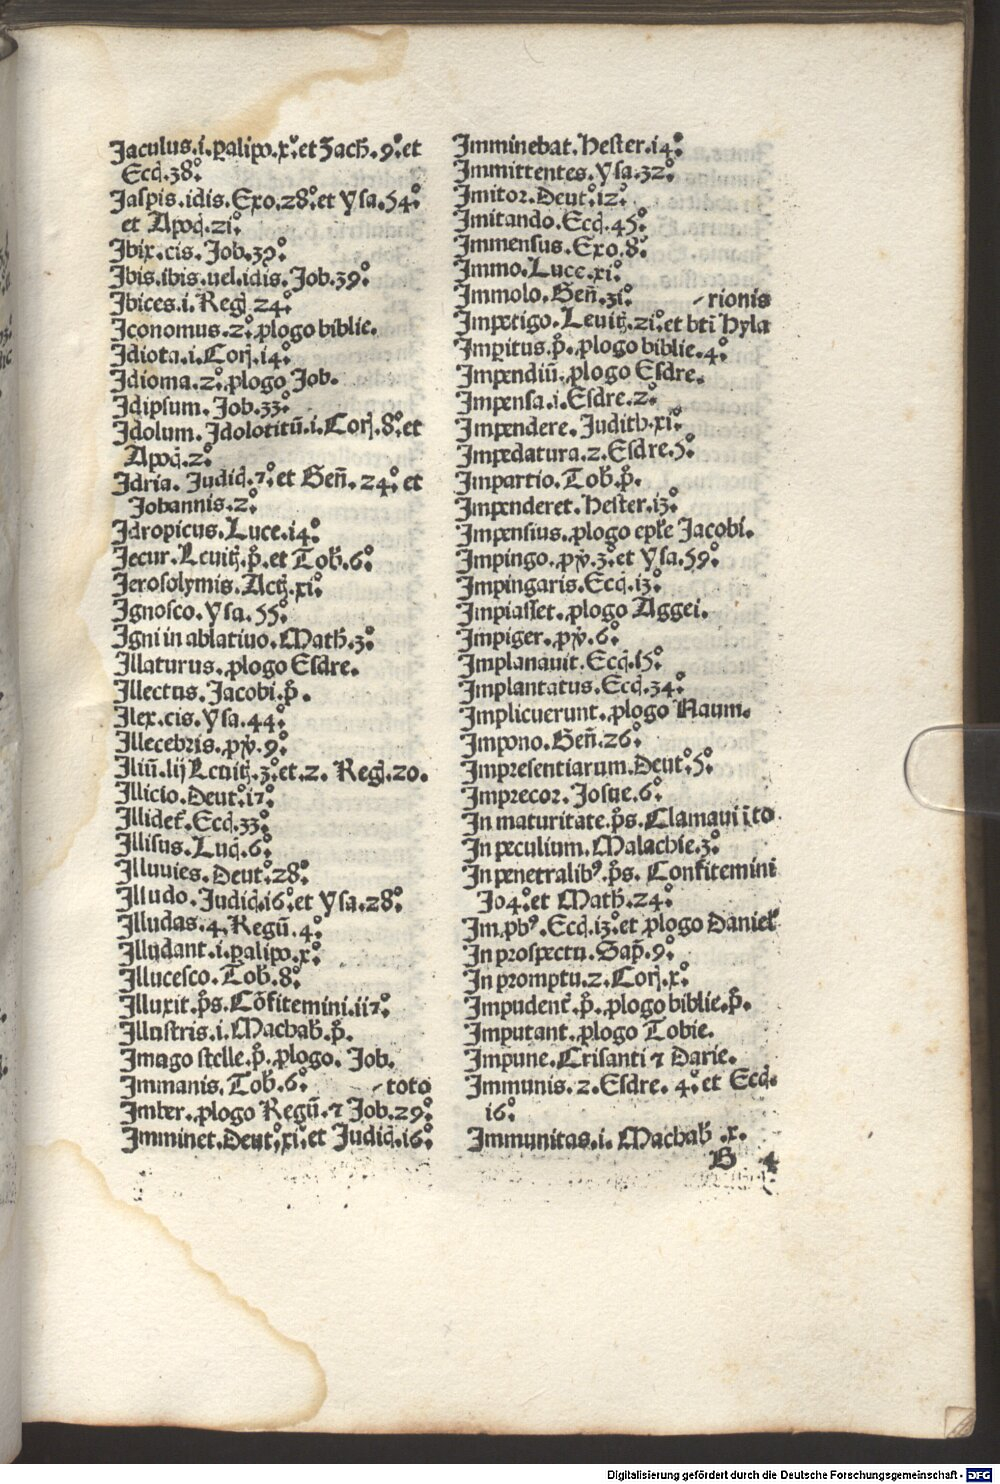 Jaculus.i.ꝑalipo.xͦ.et Zach̄.9ͦ.et
Ecc̄.38ͦ.
Jaspis.idis.Exo.28ͦ.et Ysa.54ͦ.
et Apoc̄.21ͦ.
Jbix.cis.Job.39ͦ.
Jbis.ibis.uel.idis.Job.39ͦ.
Jbices.i.Regꝭ 24ͦ.
Jconomus.2ͦ.ꝓlogo biblie.
Jdiota.i.Corꝭ.14ͦ.
Jdioma.2ͦ.ꝓlogo Job.
Jdipsum.Job.33ͦ.
Jdolum.Jdolotitū.i.Corꝭ.8ͦ.et
Apoc̄.2ͦ.
Jdria.Judic̄.7ͦ.et Gen̄.24ͦ.et
Johannis.2ͦ.
Jdropicus.Luce.14ͦ.
Jecur.Leuitꝭ.p̄.et Tob̄.6ͦ.
Jerosolymis.Actꝭ.xiͦ.
Jgnosco.Ysa.55ͦ.
Jgni in ablatiuo.Math̄.3ͦ.
Jllaturus.ꝓlogo Esdre.
Jllectus.Jacobi.p̄.
Jlex.cis.Ysa.44ͦ.
Jllecebris.ꝓv̄.9ͦ.
Jliū.lij Leuitꝭ.3ͦ.et.2.Regꝭ.20.
Jllicio.Deut̄.17ͦ.
Jllidet̄.Ecc̄.33ͦ.
Jllisus.Luc̄.6ͦ.
Jlluuies.Deut̄.28ͦ.
Jlludo.Judic̄.16ͦ.et Ysa.28ͦ.
Jlludas.4.Regū.4ͦ.
Jlludant.i.ꝑalipo.xͦ.
Jllucesco.Tob̄.8ͦ.
Jlluxit.p̄s.Cōfitemini.117ͦ.
Jllustris.i.Machab̄.p̄.
Jmago stelle.p̄.ꝓlogo.Job.
Jmmanis.Tob̄.6ͦ. -toto
Jmber.ꝓlogo Regū.⁊ Job.29ͦ.
Jmminet.Deut̄.xiͦ.et Judic̄.16ͦ.
Jmminebat.Hester.14ͦ.
Jmmittentes.Ysa.32ͦ.
Jmitor.Deut̄.12ͦ.
Jmitando.Ecc̄.45ͦ.
Jmmensus.Exo.8ͦ.
Jmmo.Luce.xiͦ.
Jmmolo.Gen̄.31ͦ. -rionis
Jmpetigo.Leuitꝭ.21ͦ.et bt̄i Hyla
Jmꝑitus.p̄.ꝓlogo biblie.4ͦ.
Jmpendiū.ꝓlogo Esdre.
Jmpensa.i.Esdre.2ͦ.
Jmpendere.Judith.xiͦ.
Jmpedatura.2.Esdre.5ͦ.
Jmpartio.Tob̄.p̄.
Jmpenderet.Hester.13ͦ.
Jmpensius.ꝓlogo epl̄e Jacobi.
Jmpingo.ꝓv̄.3ͦ.et Ysa.59ͦ.
Jmpingaris.Ecc̄.13ͦ.
Jmpiasset.ꝓlogo Aggei.
Jmpiger.ꝓv̄.6ͦ.
Jmplanauit.Ecc̄.15ͦ.
Jmplantatus.Ecc̄.34ͦ.
Jmplicuerunt.ꝓlogo Naum.
Jmpono.Gen̄.26ͦ.
Jmpresentiarum.Deut̄.5ͦ.
Jmprecor.Josue.6ͦ.
Jn maturitate.p̄s.Clamaui ī to
Jn peculium.Malachie.3ͦ.
Jn penetralibꝰ.p̄s.Confitemini
104ͦ.et Math̄.24ͦ.
Jmꝓbꝰ.Ecc̄.13ͦ.et ꝓlogo Daniel̄
Jn prospectu.Sap̄.9ͦ.
Jn promptu.2.Corꝭ.xͦ.
Jmpudent̄.p̄.ꝓlogo biblie.p̄.
Jmputant.ꝓlogo Tobie.
Jmpune.Crisanti ⁊ Darie.
Jmmunis.2.Esdre.4ͦ.et Ecc̄.
16ͦ.
Jmmunitas.i.Machab̄.x.
B 4
Digitalisierung gefördert durch die Deutsche Forschungsgemeinschaft - DFG